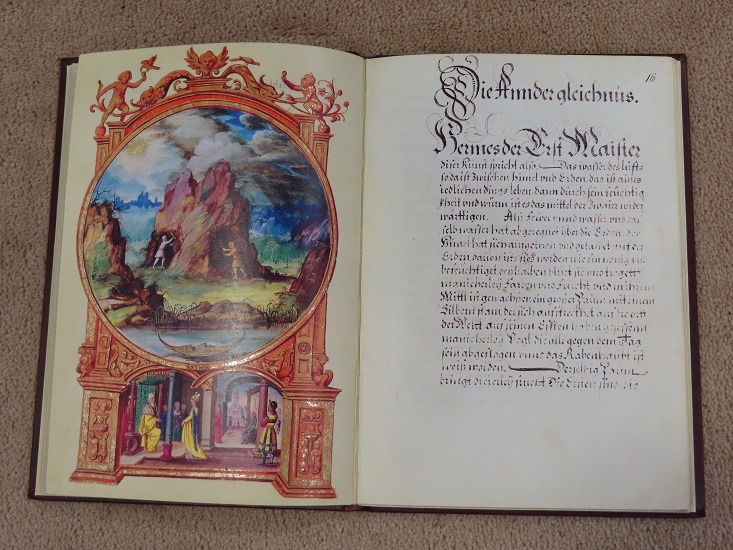 16
Die Annder gleichnus.
Hermes der Erst Maister
diser kunst spricht also. Das wasser des lüffts
so da ist zwischen himel und Erden, das ist aines
iedlichen dings leben, dann durch sein feüchtig
kheit und würm ist es das mittel der zwaier wider
wärttigen. Als Fewer unnd wasser und das
selb wasser hat abgeregnet über die Erden, der
Himel hat sich auf der
Erden, davon ist sies worden wie ein honig und
befeuchtiget
manicherley Farben und Frucht und in irem
Mittl ist gewachsen ein grosser Baum mit einem
Silbern stam, der sich ausstreckht auf die ortt
der Weltt auf seinen Esten
manicherley Vogl die alle gegen dem Tag
sein abgeflogen unnd das Rabenhaubt ist
weis worden. Derselbig Baum
bringt dreierley frucht Die Ersten sind die